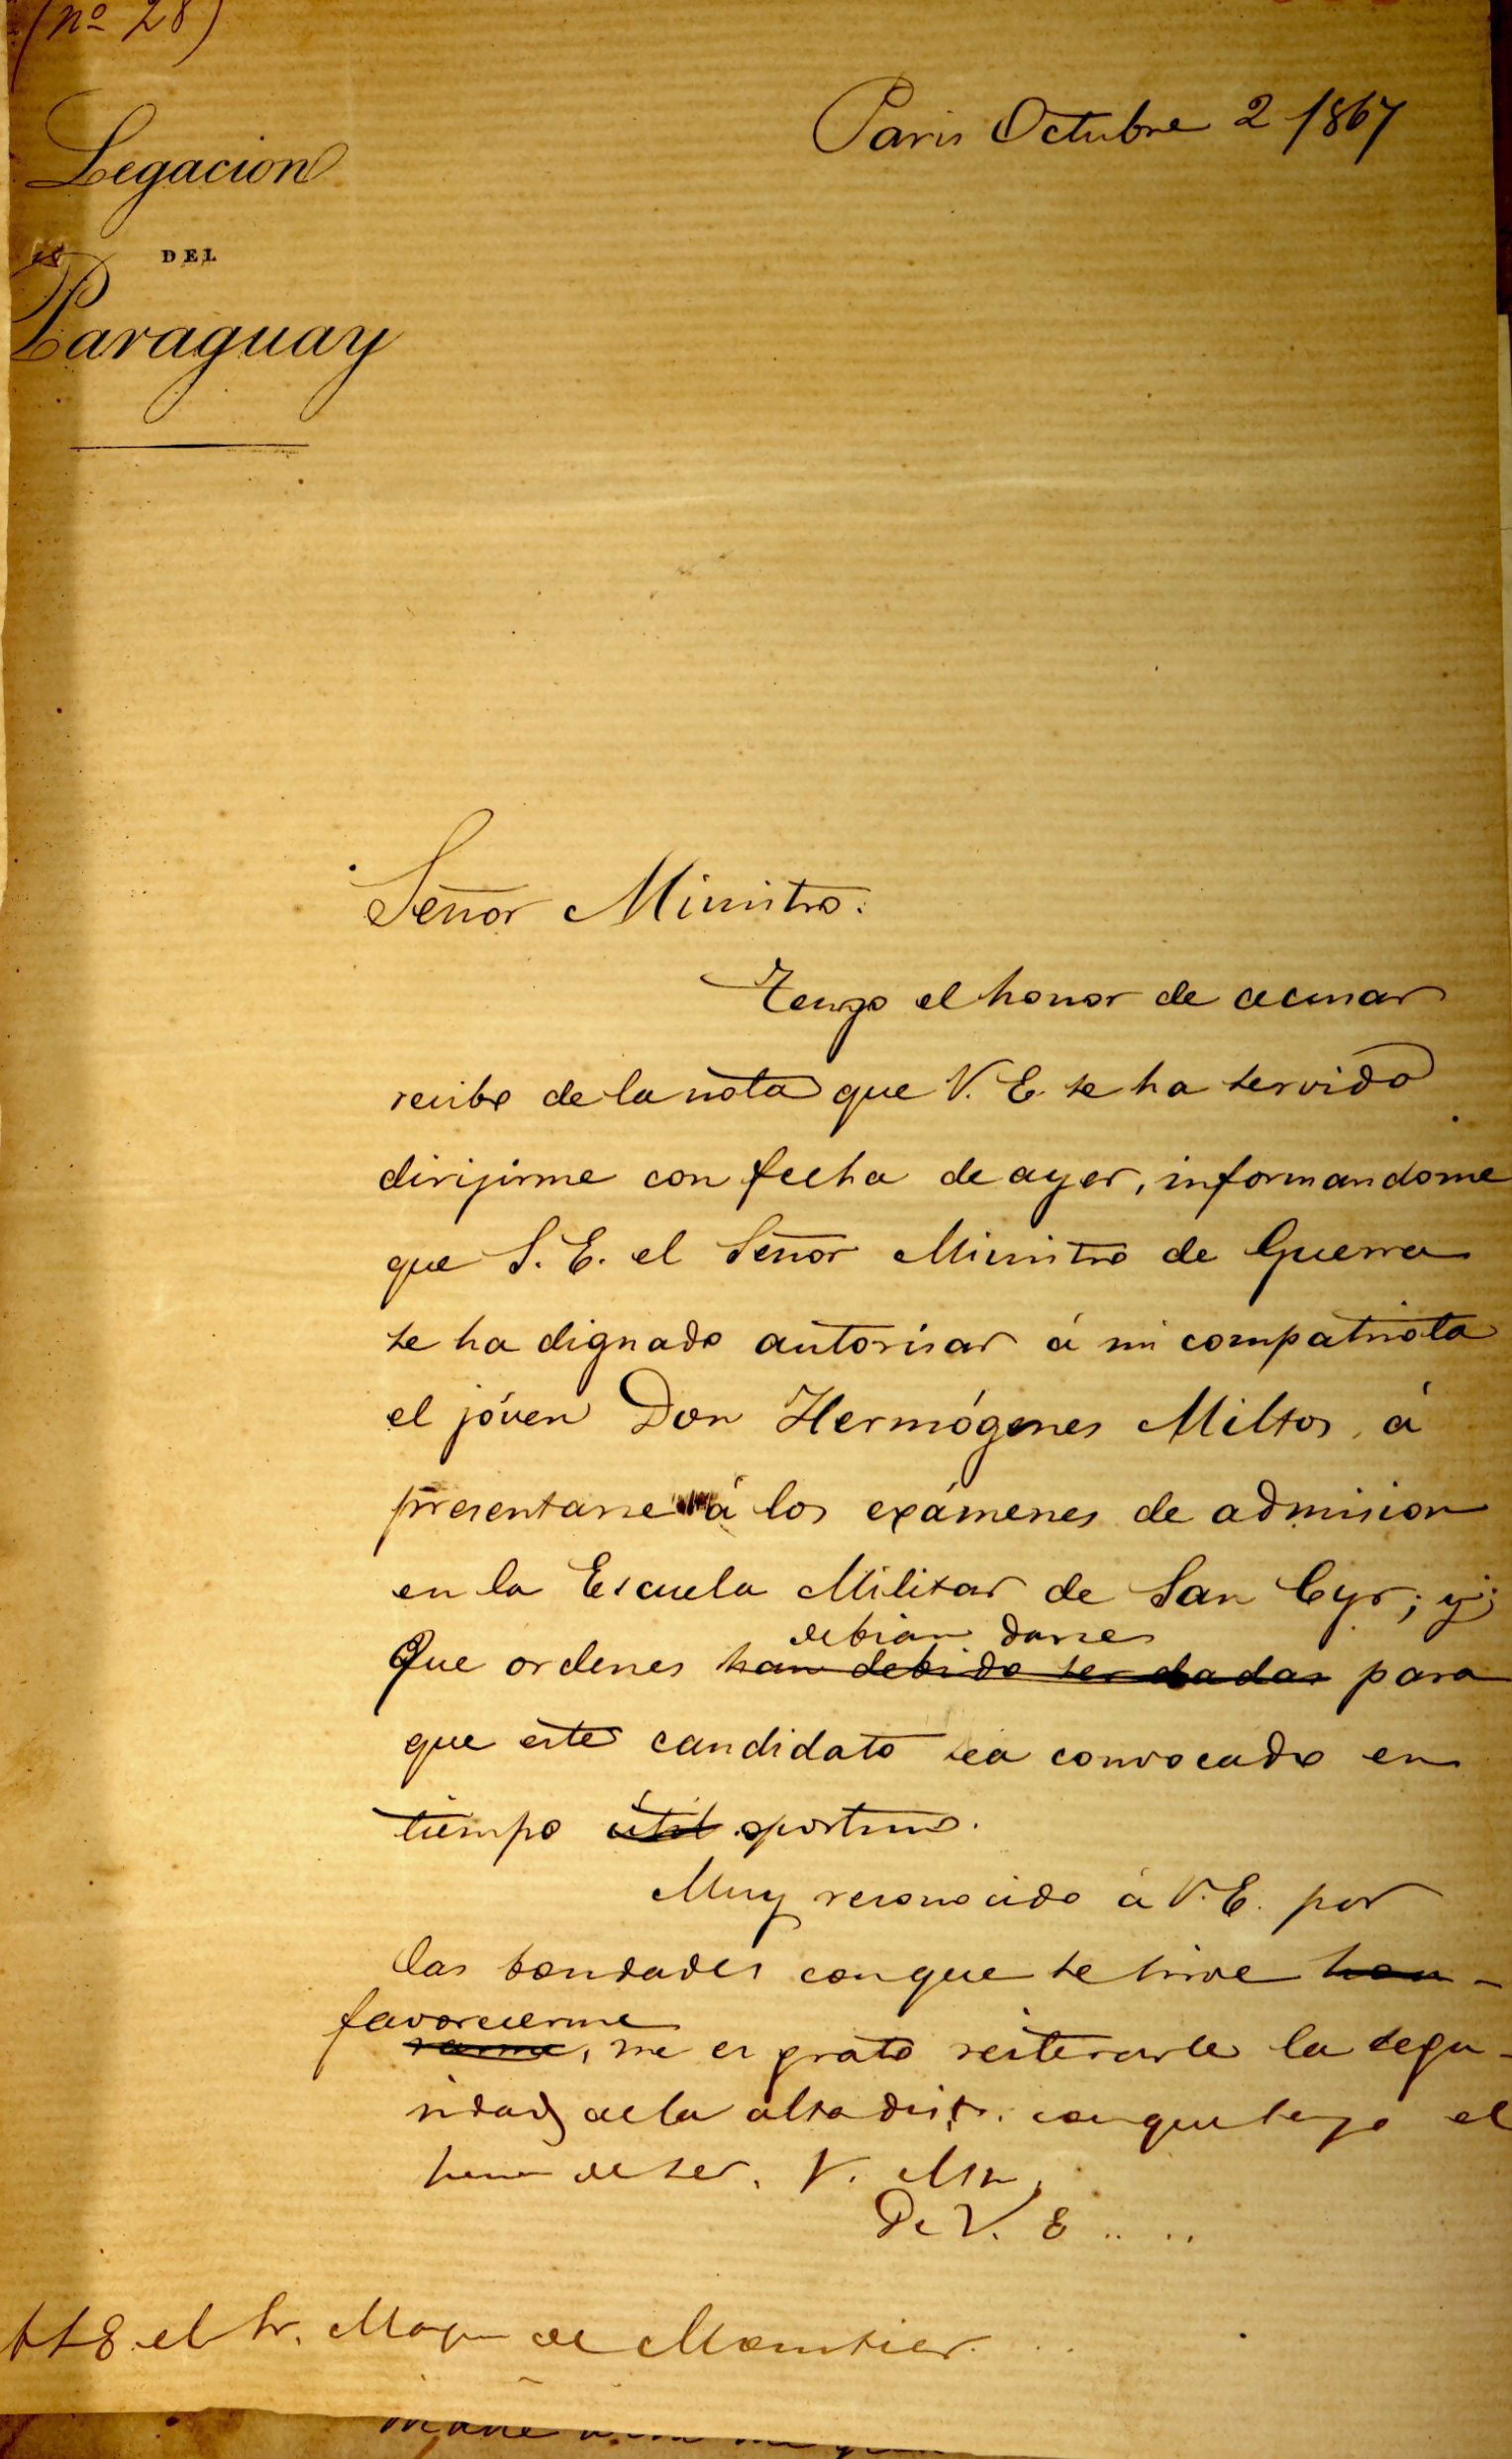 (nº 28)
Paris Octubre 2 1867
Legacion
DEL
Paraguay
Señor Ministro:
Tengo el honor de acusar
recibo de la nota que V. E. se ha servido
dirijirme con fecha de ayer, informandome
que S. E. el Señor Ministro de Guerra
se ha dignado autorisar á mi compatriota
el jóven Don Hermógenes Miltos, á
presentarse á los exámenes de admision
en la Escuela Militar de San Cyr; y
debian darse
Que ordenes han debido ser dadas para
que este candidato sea convocado en
tiempo útil oportuno.
Muy reconocido á V. E. por
las bondades con que se sirve hon-
favorecerme
rarme, me es grato reiterarle la segu-
ridad de la alta dist. con que tengo el
honor de ser, V.
De V. E.....
el Sr. Marq de Moustier